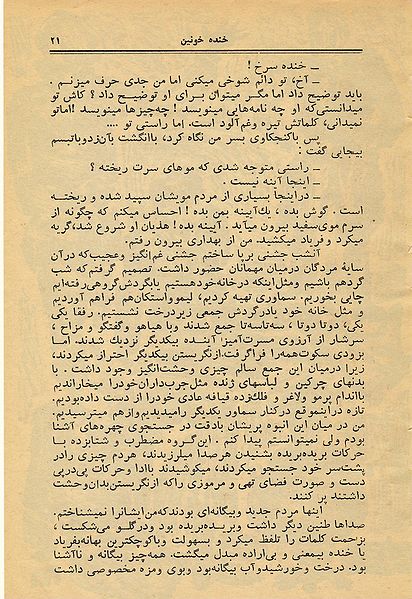 خنده خونین ۲۱
ــ خنده سرخ !
ــ آخ، تو دائم شوخی میکنی اما من جدی حرف میزنم .
باید توضیح داد اما مگر میتوان برای او توضیح داد ؟ کاش تو
میدانستی که او چه نامه‌هایی مینویسد ! چه چیزها مینویسد ! اما تو
نمیدانی، کلماتش تیره و غم آلود است. اما راستی تو ....
پس با کنجکاوی بسر من نگاه کرد، با انگشت بآن زد و با تبسم
بیجایی گفت :
ــ راستی متوجه شدی که موهای سرت ریخته ؟
ــ اینجا آینه نیست .
ــ در اینجا بسیاری از مردم مویشان سپید شده و ریخته
است . گوش بده ، یك آیینه بمن بده ! احساس میکنم که چگونه از
سرم موی سفید بیرون میآید . آیینه بده ! هذیان او شروع شد، گریه
میکرد و فریاد میکشید. من از بهداری بیرون رفتم.
آنشب جشنی برپا ساختم جشنی غم انگیز و عجیب که در آن
سایهٔ مردگان در میان مهمانان حضور داشت. تصمیم گرفتم که شب
گرد هم باشیم و مثل اینکه در خانه خود هستیم یا بگردش گروهی رفته ایم
چایی بخوریم. سماوری تهیه کردیم، لیمو و استکان هم فراهم آوردیم
و مثل خانه خود یا در گردش جمعی زیر درخت نشستیم. رفقا یکی
یکی، دوتا دوتا ، سه تا سه تا جمع شدند و با هیاهو و گفتگو و مزاح ،
سرشار از آرزوی مسرت آمیز آینده بیکدیگر نزدیك شدند. اما
بزودی سکوت همه را فرا گرفت. از نگریستن بیکدیگر احتراز میکردند،
زیرا در میان این جمع سالم چیزی وحشت انگیز وجود داشت . با
بدنهای چرکین و لباسهای ژنده مثل جرب داران خود را میخاراندیم
با اندام پرمو ولاغر و فلك زده قیافه عادی خود را از دست داده بودیم.
تازه در اینموقع در کنار سماور یکدیگر را میدیدیم و از هم میترسیدیم.
من در میان این انبوه پریشان با دقت در جستجوی چهره‌های آشنا
بودم ولی نمیتوانستم پیدا کنم . این گروه مضطرب و شتابزده با
حرکات بریده بریده بشنیدن هر صدا میلرزیدند، هر دم چیزی را در
پشت سر خود جستجو میکردند، میکوشیدند با ادا و حرکات پی در پی
دست و صورت فضای تهی و مرموزی را که از نگریستن بدان وحشت
داشتند پر کنند.
اینها مردم جدید و بیگانه‌ای بودند که من ایشان را نمیشناختم.
صداها طنین دیگر داشت و بریده بریده بود و در گلو می شکست ،
بزحمت کلمات را تلفظ میکرد و بسهولت و با کوچکترین بهانه بفریاد
یا خنده بیمعنی و بی‌اراده مبدل میگشت. همه چیز بیگانه و ناآشنا
بود. درخت و خورشید و آب بیگانه بود و بوی و مزه مخصوصی داشت